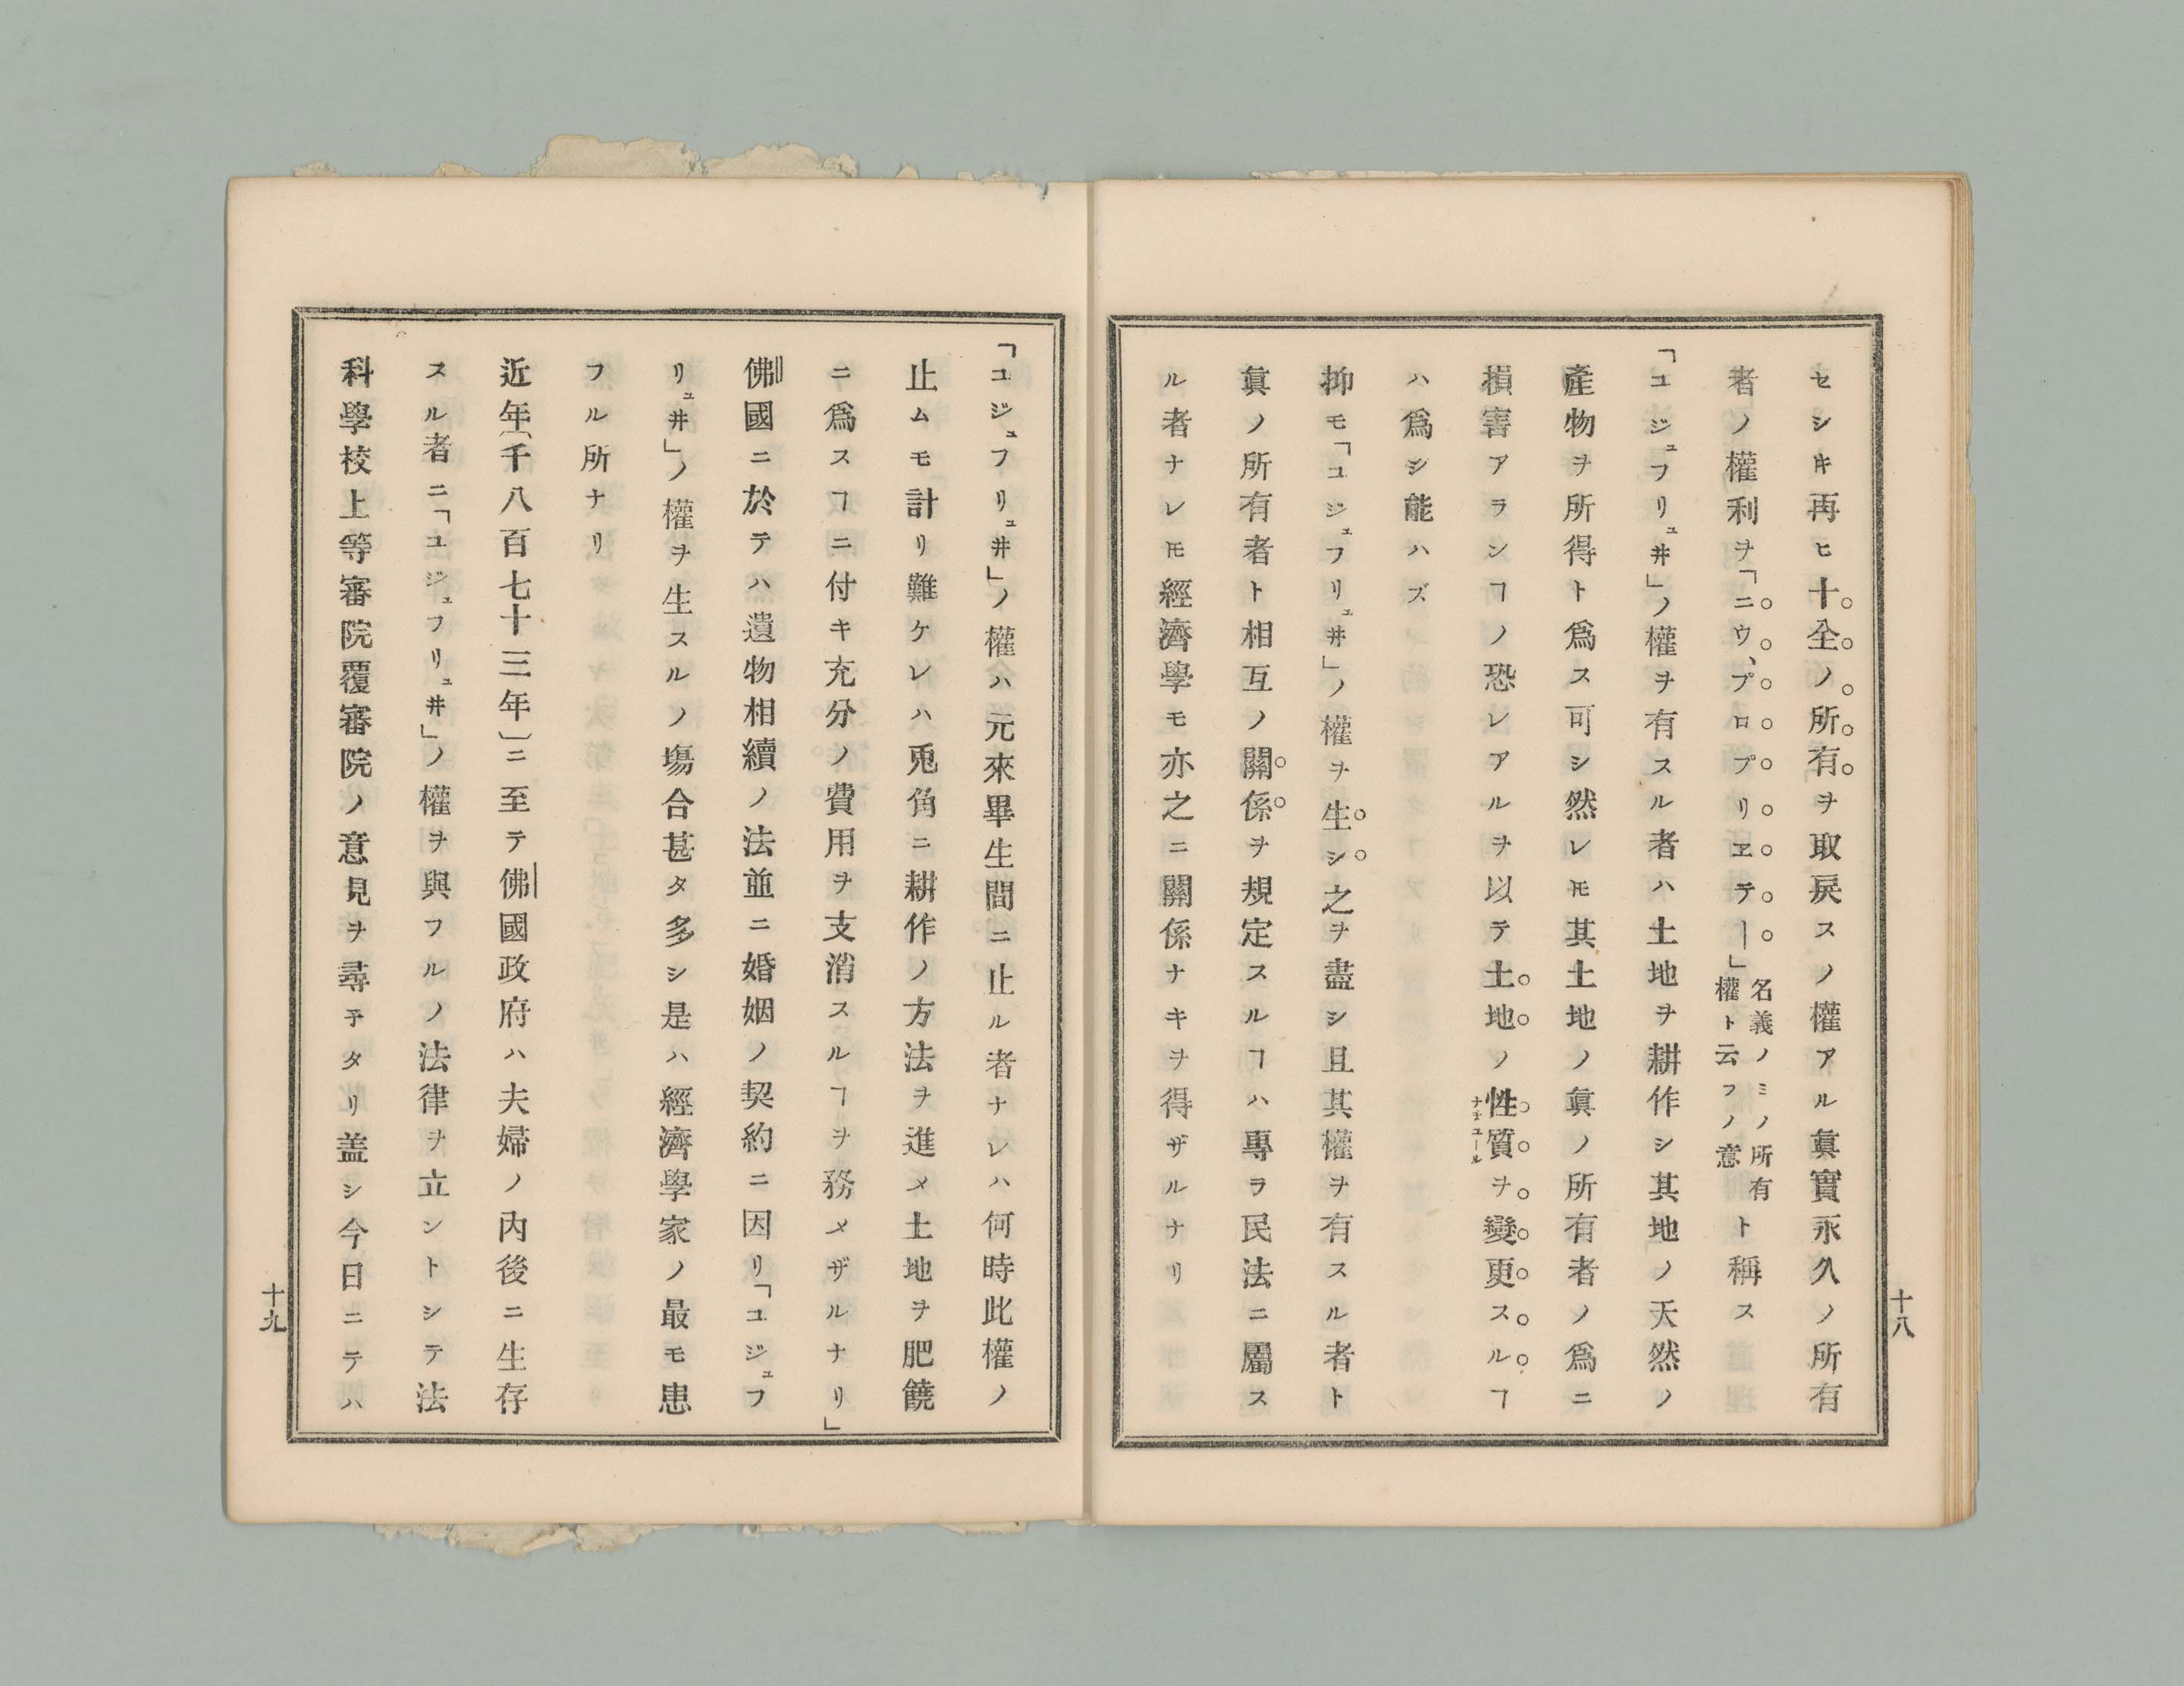 十八
セシキ再ヒ十全ノ所有ヲ取戻スノ權アル眞實永久ノ所有
者ノ權利ヲ「ニウ、プロプリヱテー」名義ノミノ所有權ト云フノ意ト稱ス
「ユジュフリュ井」ノ權ヲ有スル者ハ土地ヲ耕作シ其地ノ天然ノ
產物ヲ所得ト爲ス可シ然レ𪜈其土地ノ眞ノ所有者ノ爲ニ
損害アランヿノ恐レアルヲ以テ土地ノ性質ヲ變更スルヿ
ナチュール
ハ爲シ能ハズ
抑モ「ユジュフリュ井」ノ權ヲ生シ之ヲ盡シ且其權ヲ有スル者ト
眞ノ所有者ト相互ノ關係ヲ規定スルヿハ專ラ民法ニ屬ス
ル者ナレ𪜈經濟學モ亦之ニ關係ナキヲ得ザルナリ
「ユジュフリュ井」ノ權ハ元來畢生間ニ止ル者ナレハ何時此權ノ
止ムモ計リ難ケレハ兎角ニ耕作ノ方法ヲ進メ土地ヲ肥饒
ニ爲スヿニ付キ充分ノ費用ヲ支消スルヿヲ務メザルナリ」
佛國ニ於テハ遺物相續ノ法並ニ婚姻ノ契約ニ因リ「ユジュフ
リュ井」ノ權ヲ生スルノ塲合甚タ多シ是ハ經濟學家ノ最モ患
フル所ナリ
近年(千八百七十三年)ニ至テ佛國政府ハ夫婦ノ內後ニ生存
スル者ニ「ユジュフリュ井」ノ權ヲ與フルノ法律ヲ立ントシテ法
科學校上等審院覆審院ノ意見ヲ尋子タリ盖シ今日ニテハ
十九